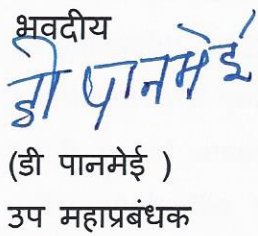 भवदीय
डी पानमेई
(डी पानमेई )
उप महाप्रबंधक